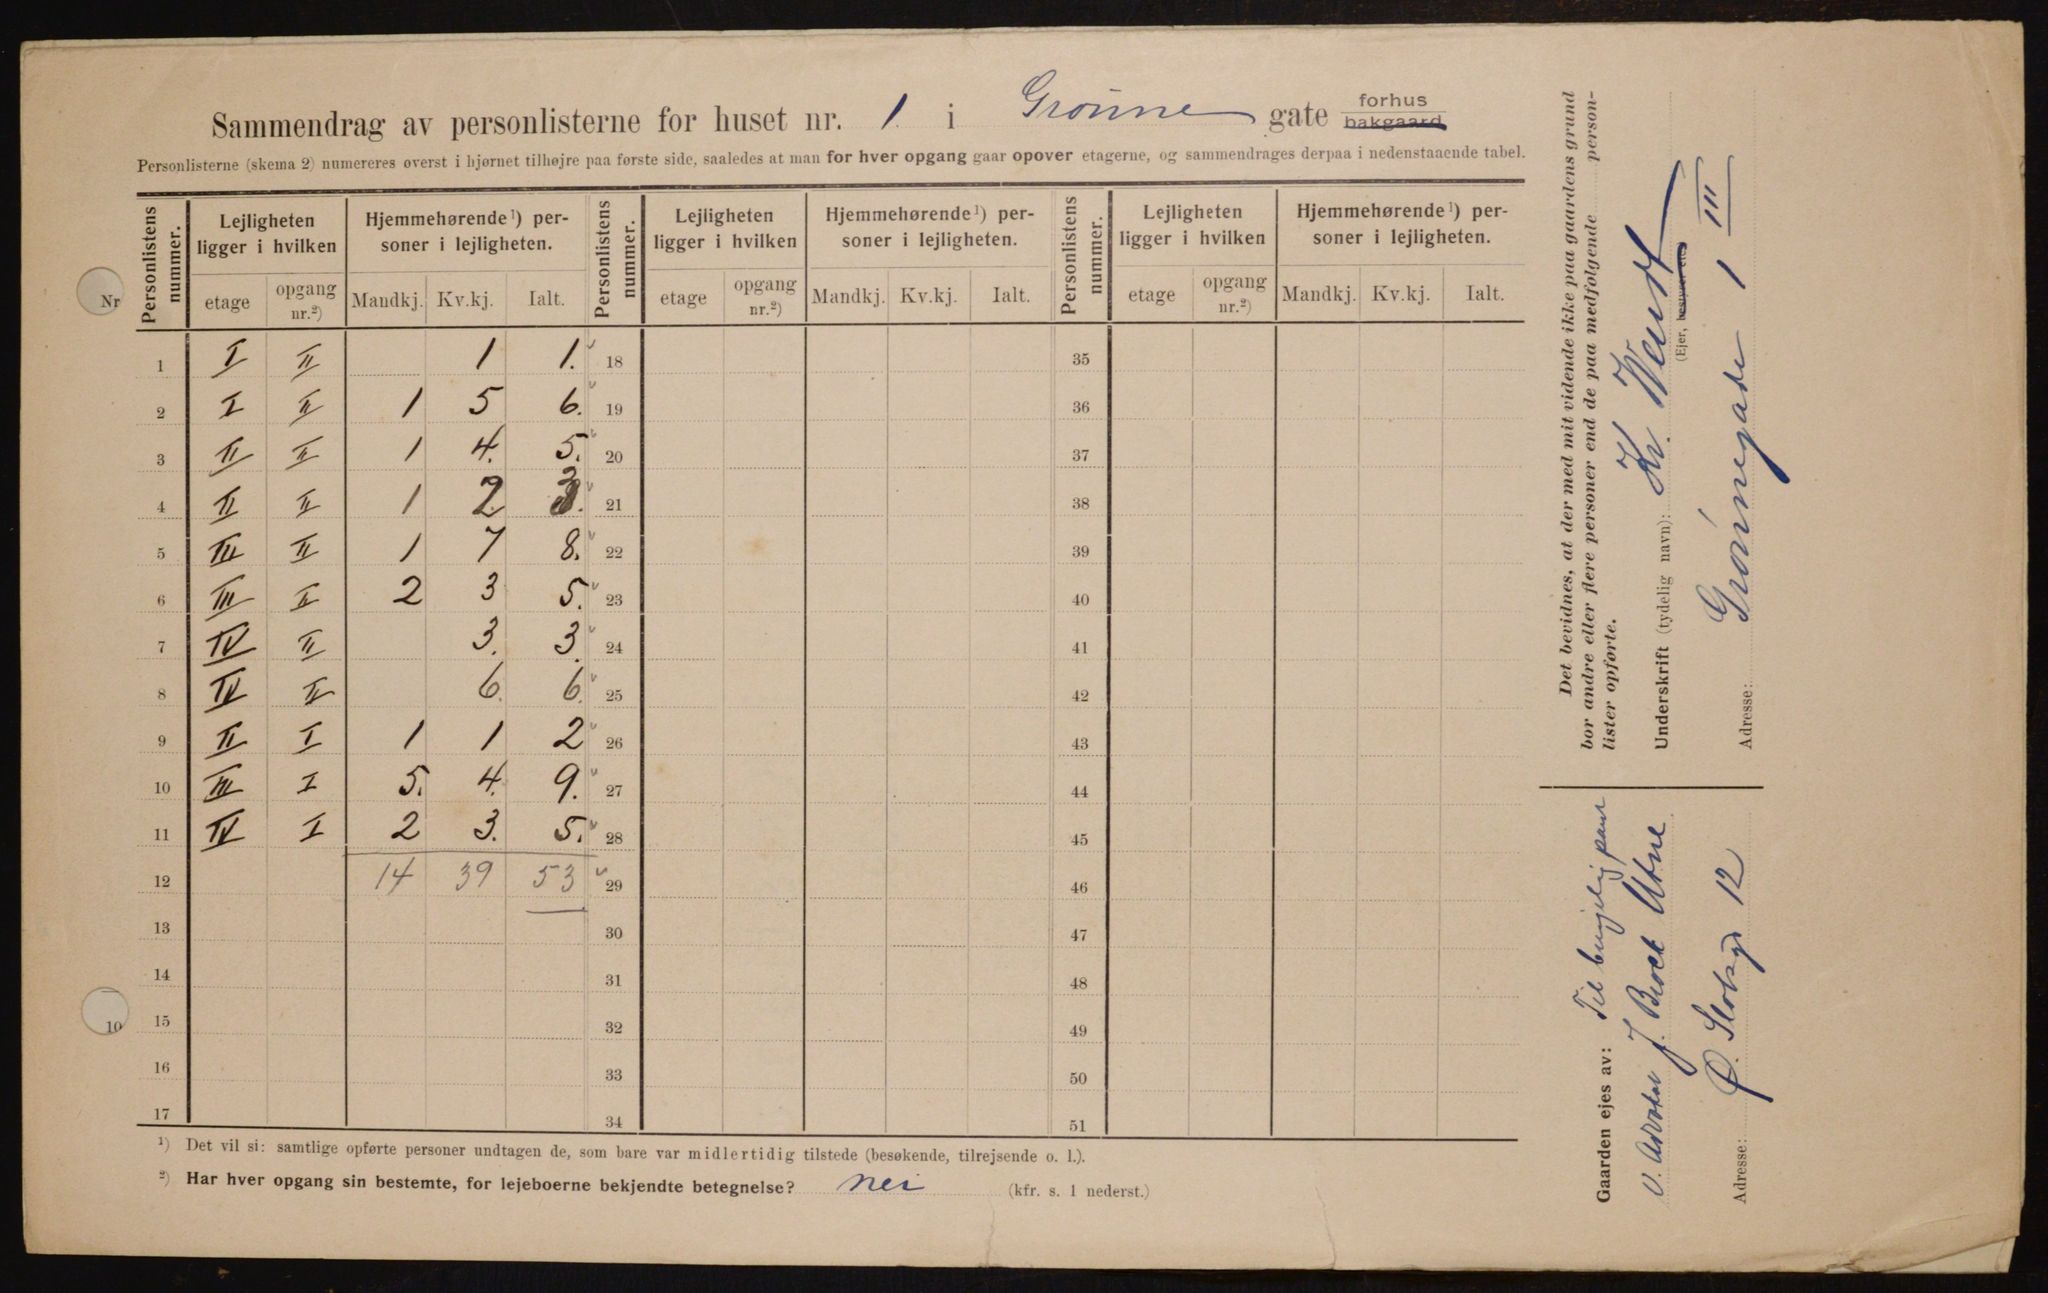 Sammendrag av personlisterne for huset nr. 1 i Grønne gate forhus bakgaard
Personlisterne (skema 2) numereres øverst i hjørnet tilhøjre paa første side, saaledes at man for hver opgang gaar opover etagerne, og sammendrages derpaa i nedenstaaende tabel.
Personlistens nummer. Lejligheten ligger i hvilken Hjemmehørende¹) personer i lejligheten. Personlistens nummer. Lejligheten ligger i hvilken Hjemmehørende¹) personer i lejligheten. Personlistens nummer. Lejligheten ligger i hvilken Hjemmehørende¹) personer i lejligheten.
etage opgang nr.²) Mandkj. Kv.kj. Ialt. etage opgang nr.²) Mandkj. Kv.kj. Ialt. etage opgang nr.²) Mandkj. Kv.kj. Ialt.
1 I II 1 1. 18 35
2 I II 1 5 6. 19 36
3 II II 1 4. 5. 20 37
4 II II 1 2 3. 21 38
5 III II 1 7 8. 22 39
6 III II 2 3 5. 23 40
7 IV II 3. 3. 24 41
8 IV II 6. 6. 25 42
9 II I 1 1 2 26 43
10 III I 5. 4. 9. 27 44
11 IV I 2 3. 5. 28 45
12 14 39 53 29 46
13 30 47
14 31 48
15 32 49
16 33 50
17 34 51
¹) Det vil si: samtlige opførte personer undtagen de, som bare var midlertidig tilstede (besøkende, tilrejsende o. l.).
²) Har hver opgang sin bestemte, for lejeboerne bekjendte betegnelse? nei (kfr. s. 1 nederst.)
Nr
10
Det bevidnes, at der med mit vidende ikke paa gaardens grund
bor andre eller flere personer end de paa medfølgende person-
lister opførte.
Underskrift (tydelig navn): Kr. Wendt
(Ejer, bestyrer etc.)
Adresse: Grønnegade 1 III
Gaarden ejes av:
J. Brock Utne
Adresse: Ø. Slotsgt 12